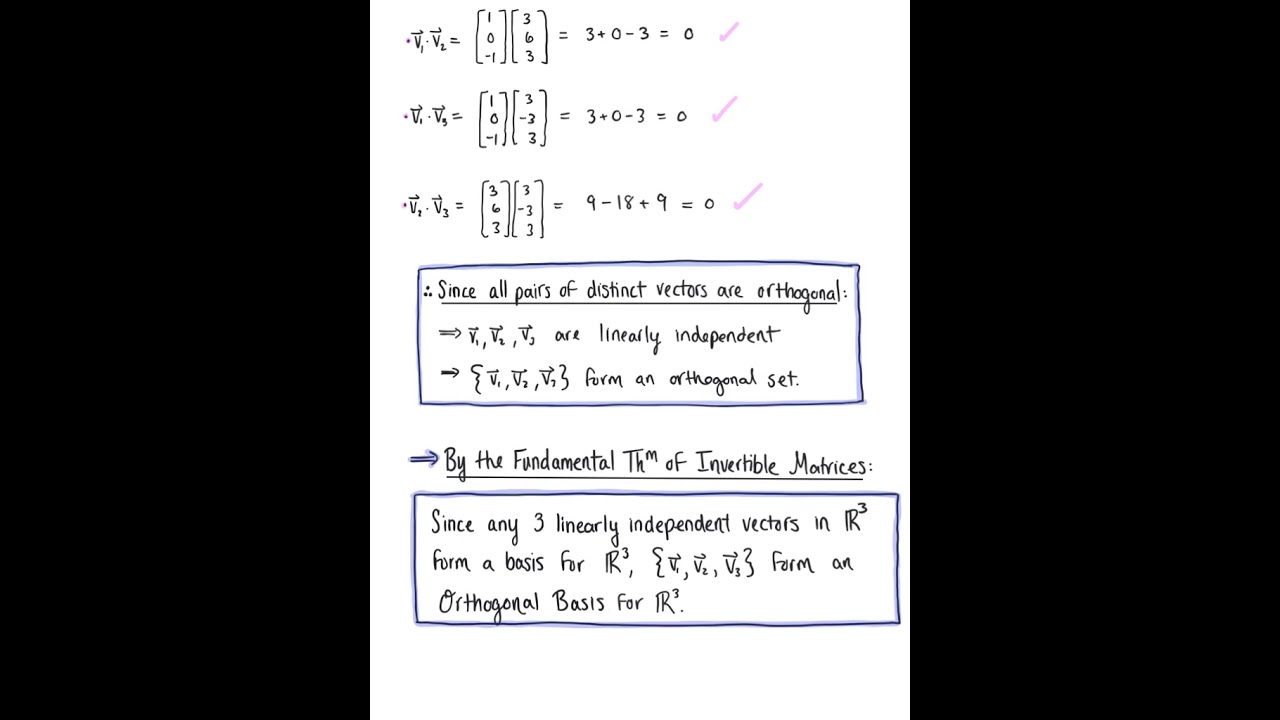 • v⃗₁ · v⃗₂ = [1 0 -1] [3 6 3] = 3 + 0 - 3 = 0 ✓
• v⃗₁ · v⃗₃ = [1 0 -1] [3 -3 3] = 3 + 0 - 3 = 0 ✓
• v⃗₂ · v⃗₃ = [3 6 3] [3 -3 3] = 9 - 18 + 9 = 0 ✓
∴ Since all pairs of distinct vectors are orthogonal:
⇒ v⃗₁, v⃗₂, v⃗₃ are linearly independent
⇒ {v⃗₁, v⃗₂, v⃗₃} form an orthogonal set.
⇒ By the Fundamental Thᵐ of Invertible Matrices:
Since any 3 linearly independent vectors in ℝ³
form a basis for ℝ³, {v⃗₁, v⃗₂, v⃗₃} form an
Orthogonal Basis for ℝ³.